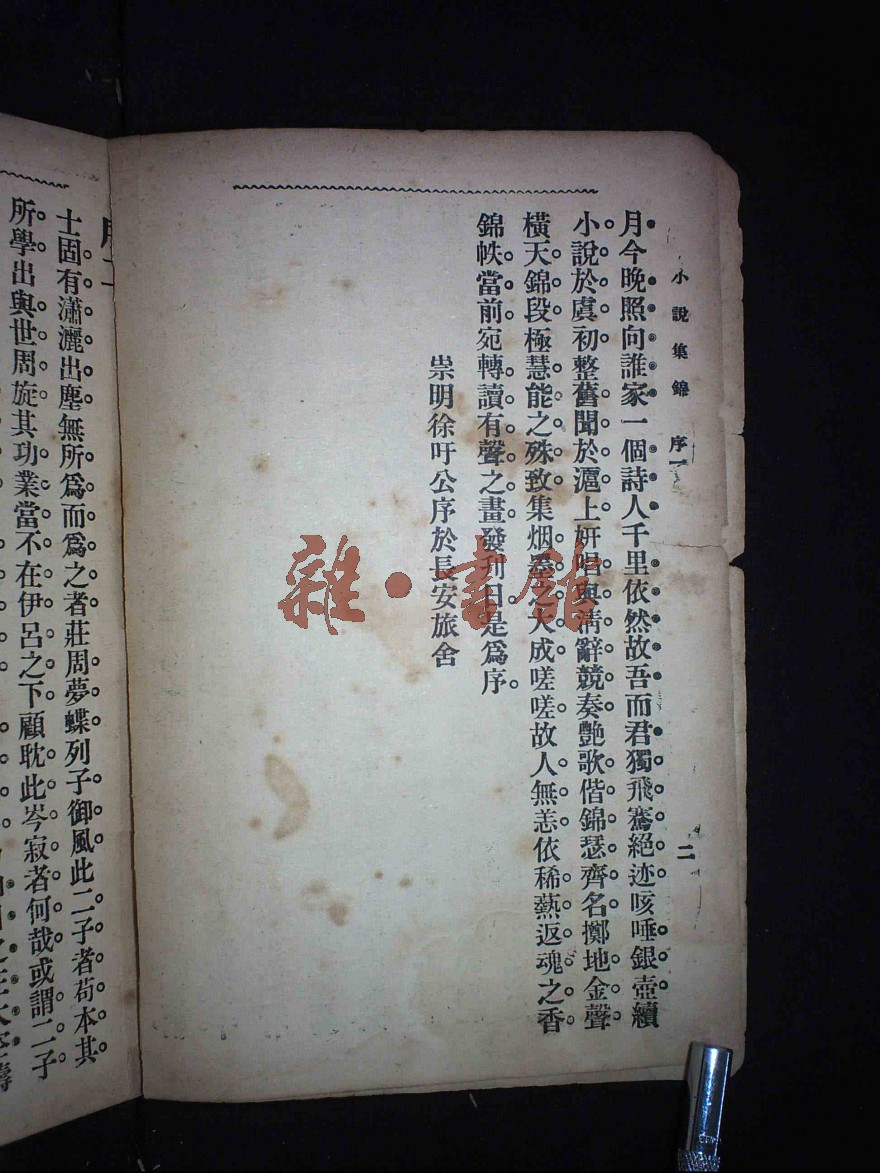 小說集錦 序一 二
月今晚照向誰家一個詩人千里依然故吾而君獨飛騫絕迹咳唾銀壺續
小說於虞初整舊聞於滬上妍唱與淸辭競奏艷歌偕錦瑟齊名擲地金聲
橫天錦段極慧能之殊致集烟墨之大成嗟嗟故人無恙依稀爇返魂之香
錦帙當前宛轉讀有聲之畫發刋日是爲序
崇明徐吁公序於長安旅舍
士固有瀟灑出塵無所爲而爲之者莊周夢蝶列子御風此二子者苟本其
所學出與世周旋其功業當不在伊呂之下顧耽此岑寂者何哉或謂二子
雜·書館